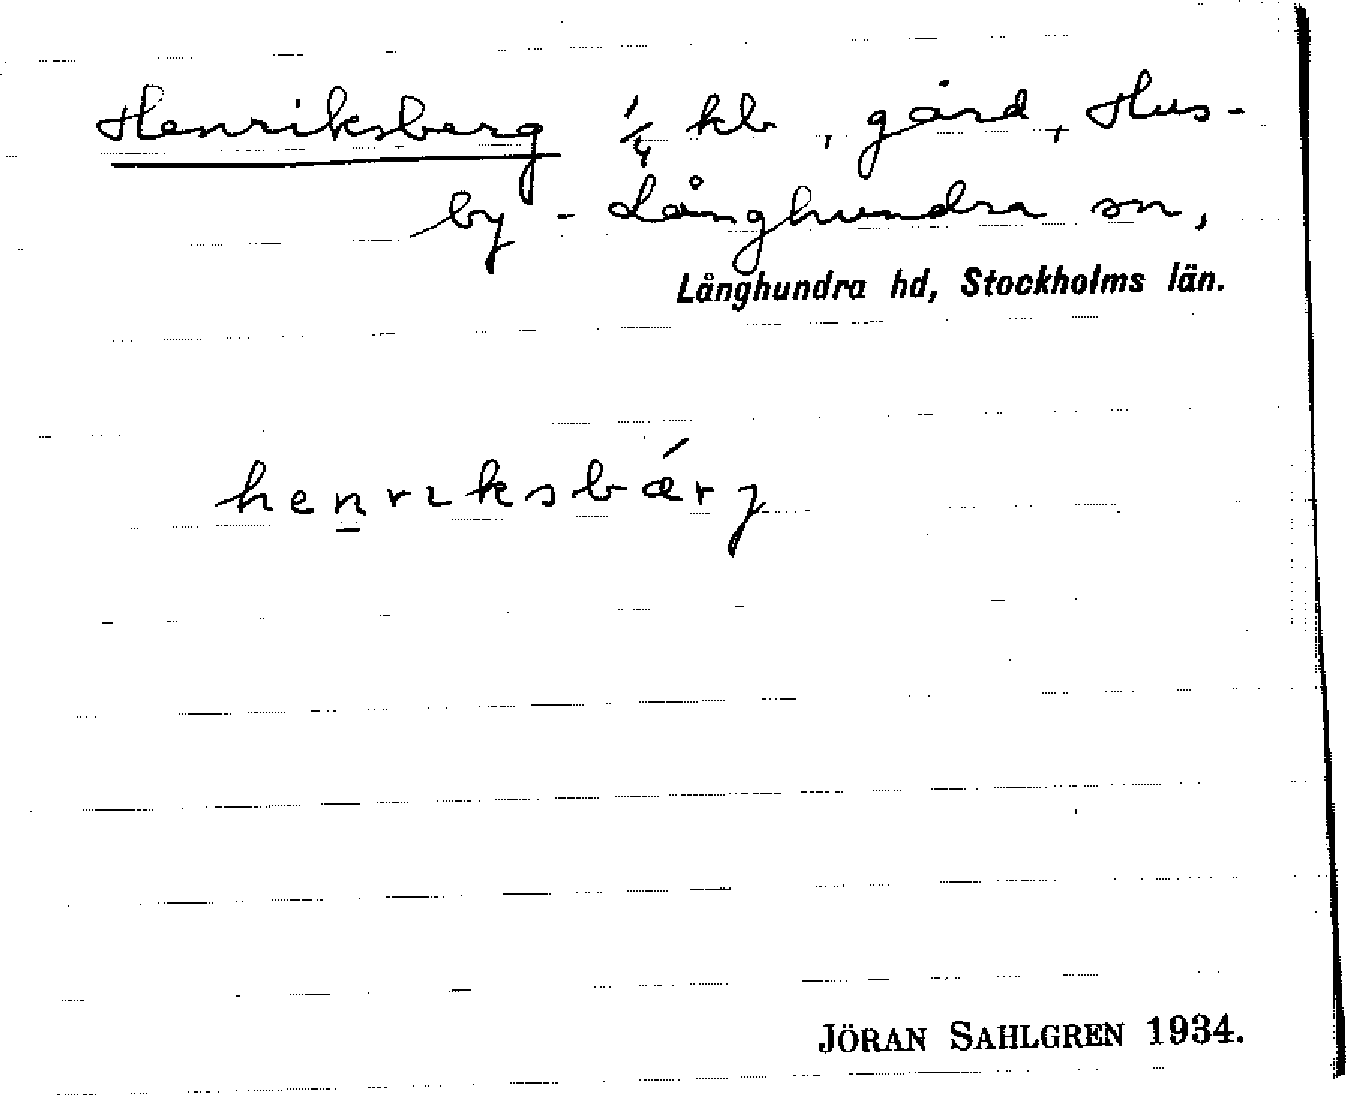 Henriksberg 1/4 kb, gård, Hus-
by-Långhundra sn,
Långhundra hd, Stockholms län.
henrıksbǽrȷ
JÖRAN SAHLGREN 1934.